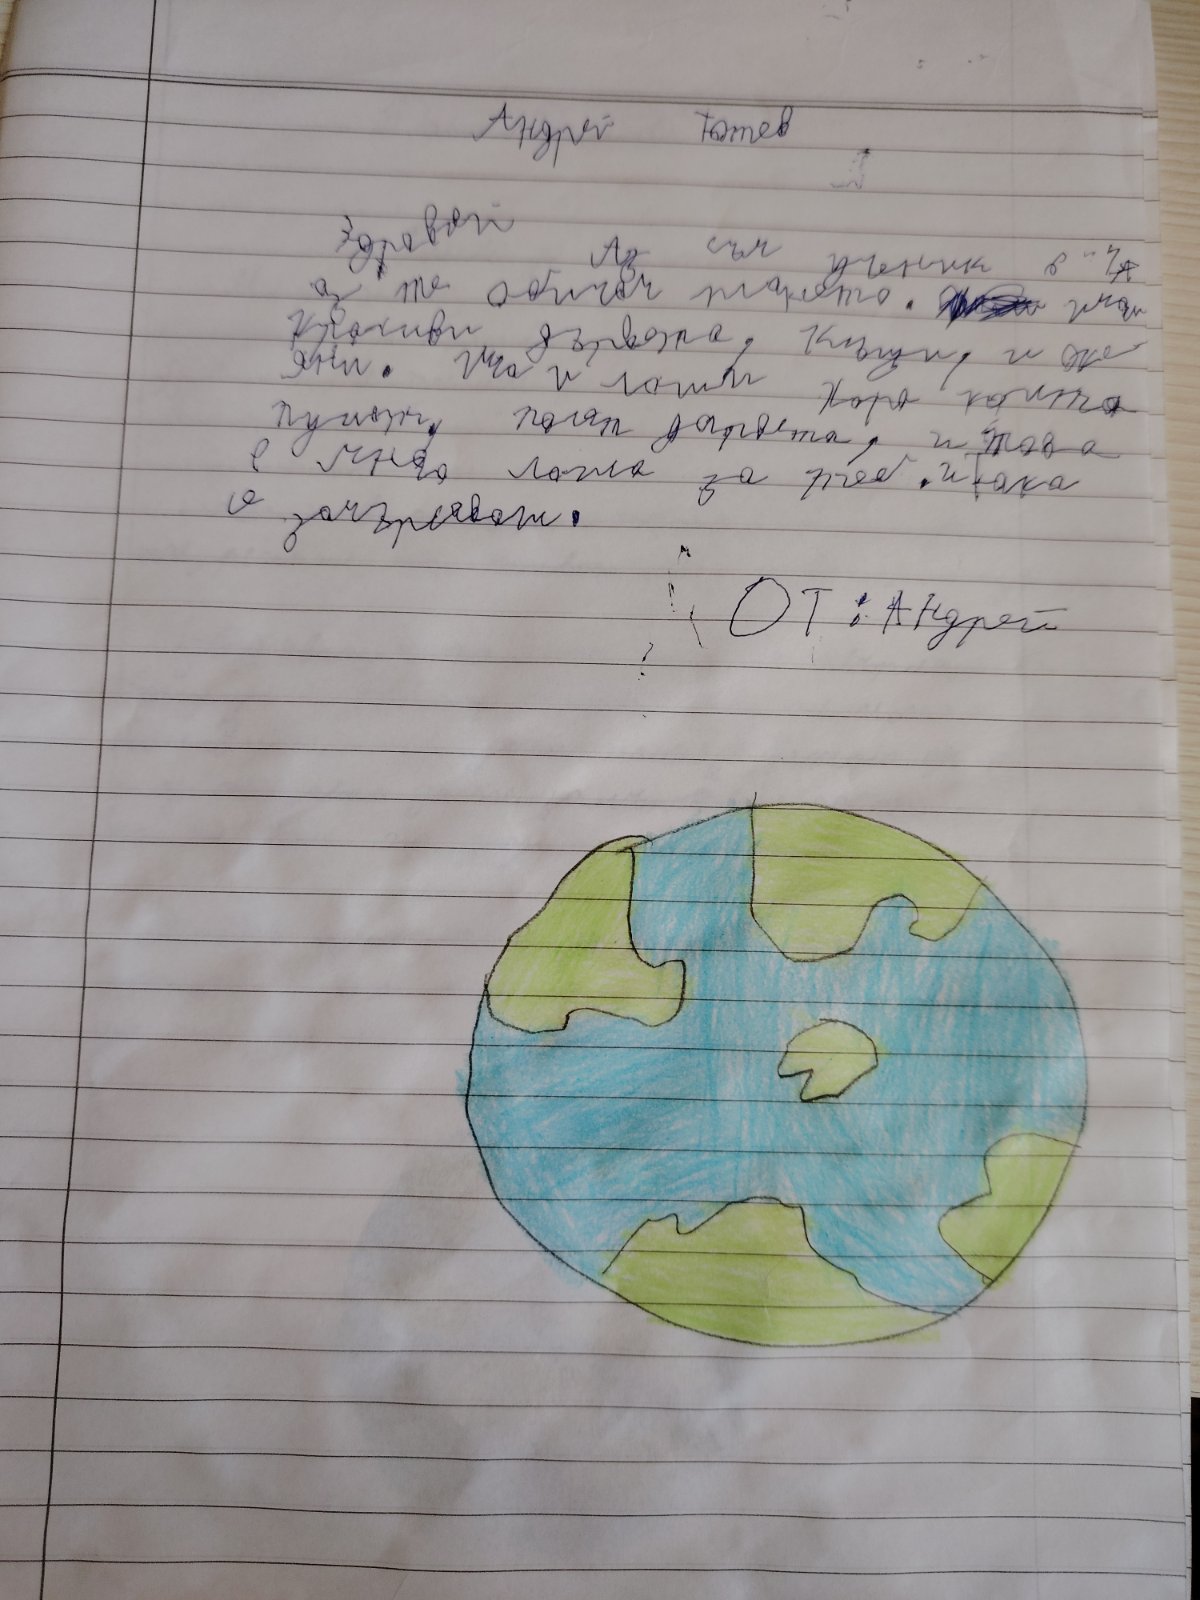 Андрей Тотев
Здравей
Аз съм ученик в "4А
аз те обичам плането. имаш
красиви дървета, къщи, и оке-
яни. Има и лоши хора които
пушат, палят гората, и това
е много лошо за теб. и така
се замърсяваш.
ОТ: Андрей